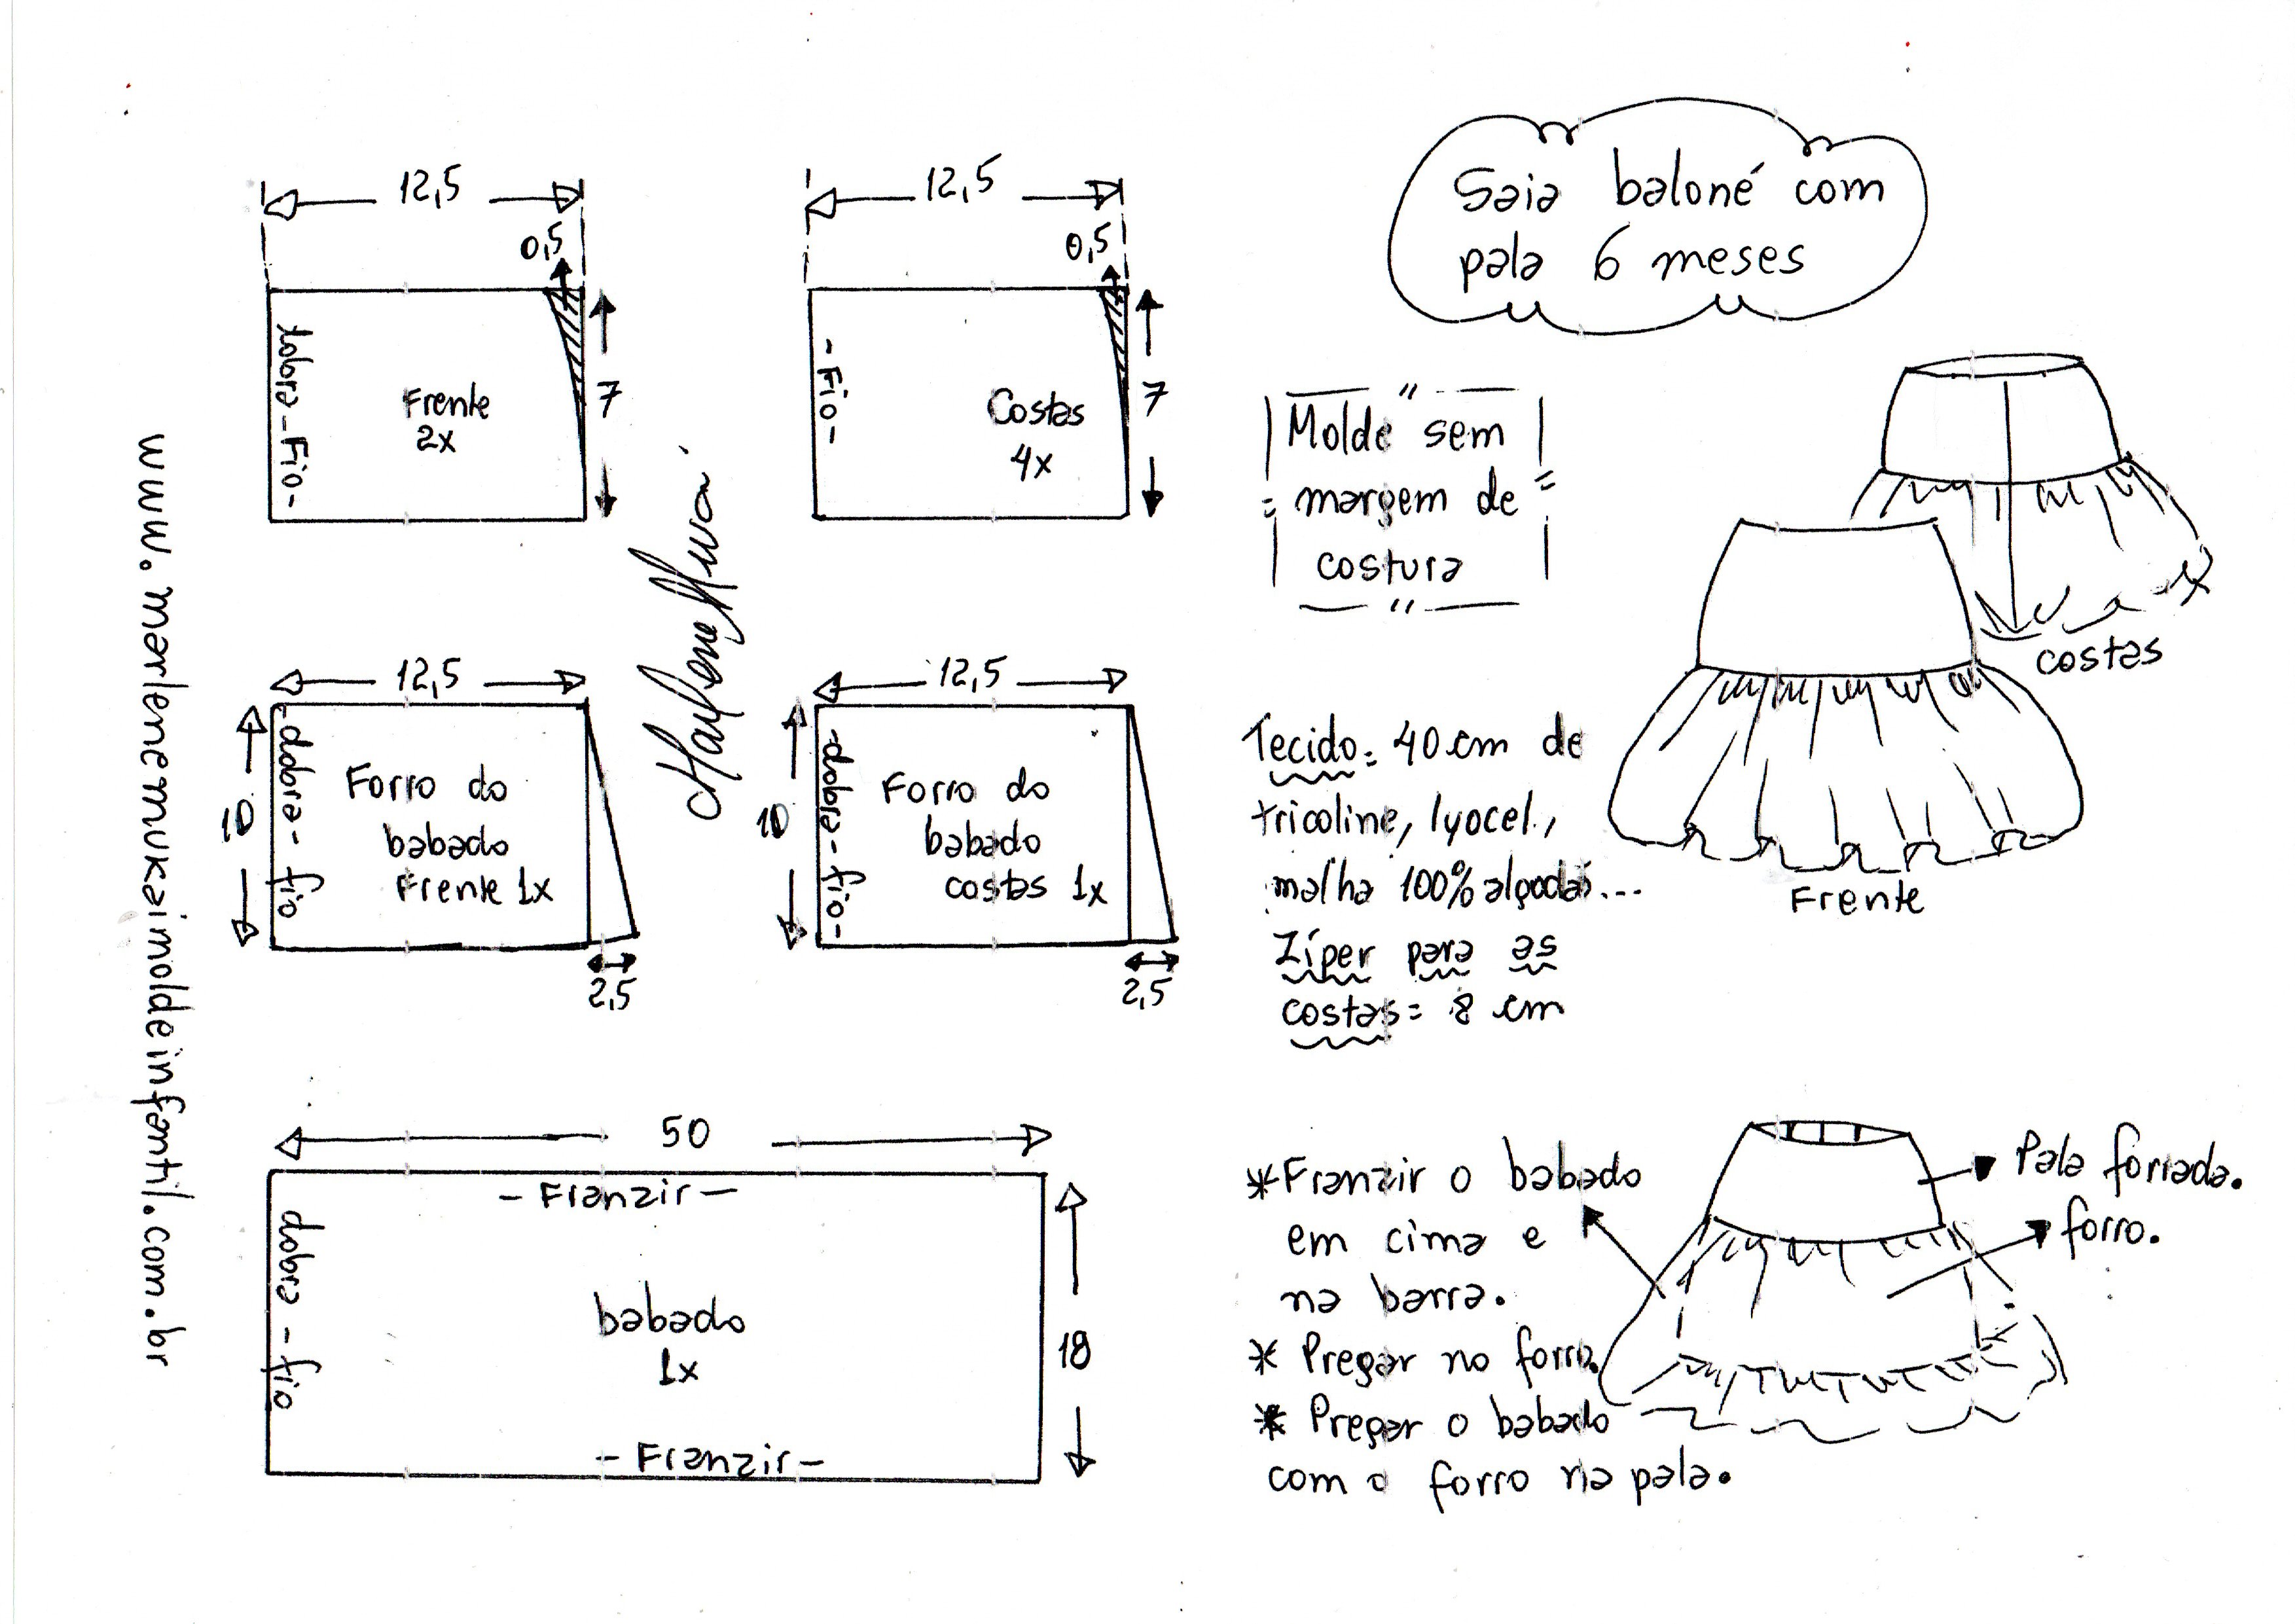 Saia baloné com
pala 6 meses
12,5
0,5
dobra - Fio -
Frente
2x
7
12,5
0,5
- Fio -
Costas
4x
7
"
Molde sem
margem de
costura
"
costas
Frente
12,5
10
- dobra - fio
Forro do
babado
Frente 1x
2,5
12,5
10
- dobra - fio -
Forro do
babado
costas 1x
2,5
Tecido: 40 cm de
tricoline, lyocel,
malha 100% algodão...
Zíper para as
costas = 8 cm
50
- Franzir -
dobra - fio
babado
1x
18
- Franzir -
*Franzir o babado
em cima e
na barra.
* Pregar no forro.
* Pregar o babado
com o forro na pala.
Pala forrada.
forro.
www.marlenemukaimoldeinfantil.com.br